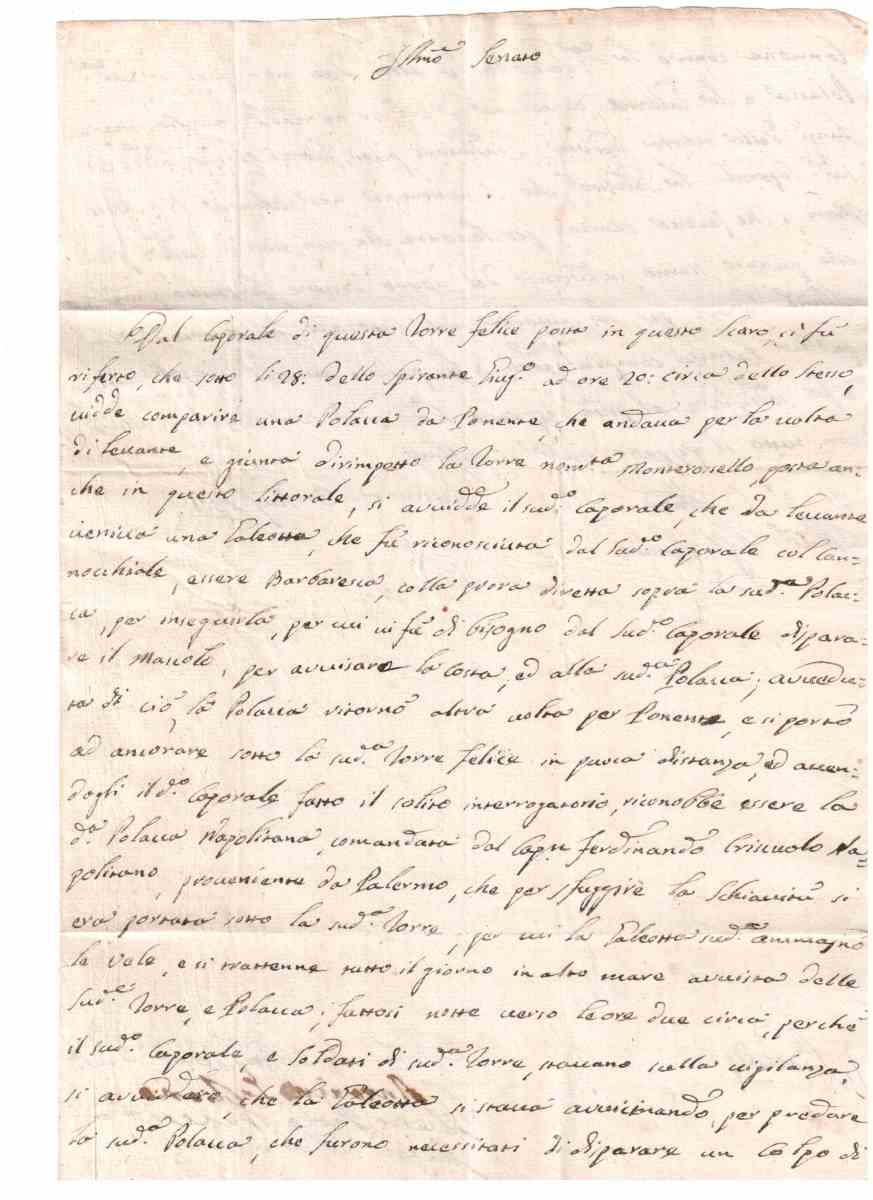 Ill.mo Senato
Dal Caporale di questa Torre felice posta in questo Scaro, ci fù
riferto, che sotto li 28: dello Spirante Giug.o ad ore 20: circa dello stesso,
vidde comparire una Polacca da Ponente, che andava per la volta
di levante, e giunta dirimpetto la Torre nom.ta Monterossello, posta an=
che in questo littorale, si avvidde il sud.o Caporale, che da levante
veniva una Galeotta, che fù riconosciuta dal sud.o Caporale col Can=
nocchiale, essere Barbaresca, colla prora diretta sopra la sud.a Polac=
ca, per inseguirla, per cui vi fù di bisogno dal sud.o Caporale dispara=
re il Mascolo, per avvisare la Costa, ed alla sud.a Polacca; avvedu=
ta di ciò la Polacca ritornò altra volta per Ponente, e si portò
ad ancorare sotto la sud.a Torre felice in poca distanza, ed aven=
dogli il d.o Caporale fatto il solito interrogatorio, riconobbe essere la
d.a Polacca Napolitana, comandata dal Cap.n Ferdinando Criscuolo Na=
politano, proveniente da Palermo, che per sfuggire la Schiavitù si
era portata sotto la sud.a Torre, per cui la Galeotta sud.a ammainò
le vele, e si trattenne tutto il giorno in alto mare avvista delle
sud.e Torre, e Polacca; fattosi notte verso le ore due circa, perchè
il sud.o Caporale, e Soldati di sud.a Torre, stavano sulla vigilanza,
si avviddero, che la Galeotta si stava avvicinando, per predare
la sud.a Polacca, che furono necessitati di disparare un Colpo di